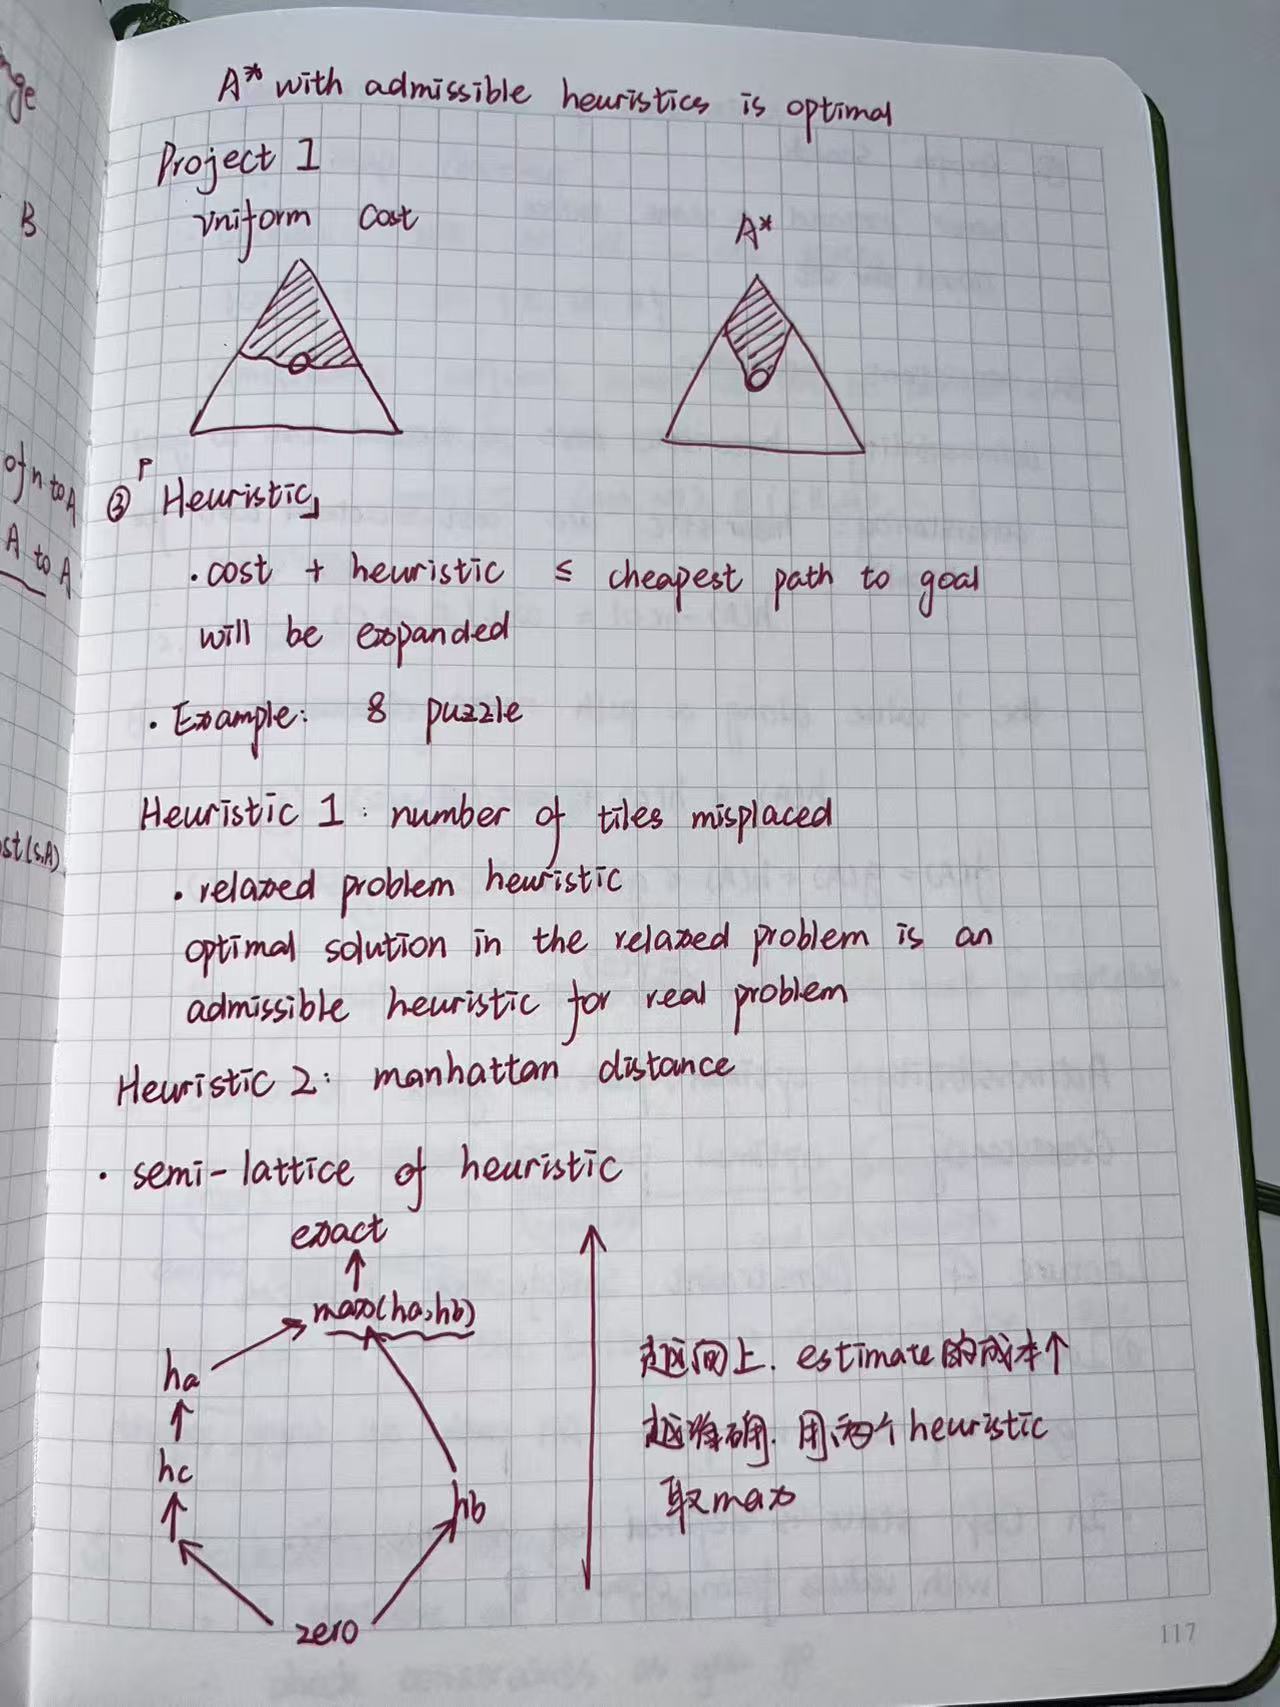 nge
B
of n to A
A to A
st(s,A)
A* with admissible heuristics is optimal
Project 1
Uniform Cost
A*
③「Heuristic」
· cost + heuristic ≤ cheapest path to goal
will be expanded
· Example: 8 puzzle
Heuristic 1: number of tiles misplaced
· relaxed problem heuristic
optimal solution in the relaxed problem is an
admissible heuristic for real problem
Heuristic 2: manhattan distance
· semi-lattice of heuristic
exact
max(ha,hb)
ha
hc
hb
zero
越向上. estimate的成本↑
越准确. 用两个heuristic
取max
117